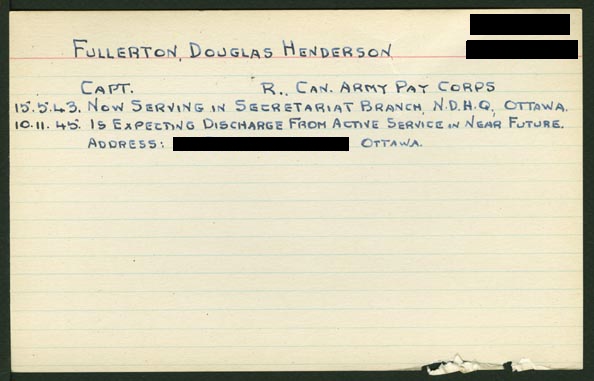 FULLERTON, DOUGLAS HENDERSON
CAPT. R., CAN. ARMY PAY CORPS
15.5.43. NOW SERVING IN SECRETARIAT BRANCH, N.D.H.Q, OTTAWA.
10.11.45. IS EXPECTING DISCHARGE FROM ACTIVE SERVICE IN NEAR FUTURE.
ADDRESS: OTTAWA.